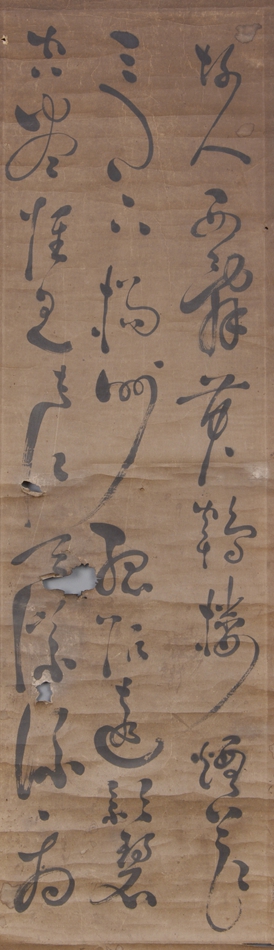 故人西辭黄鶴樓煙花
三月下揚州孤帆遠影碧
空盡惟見長江天際流